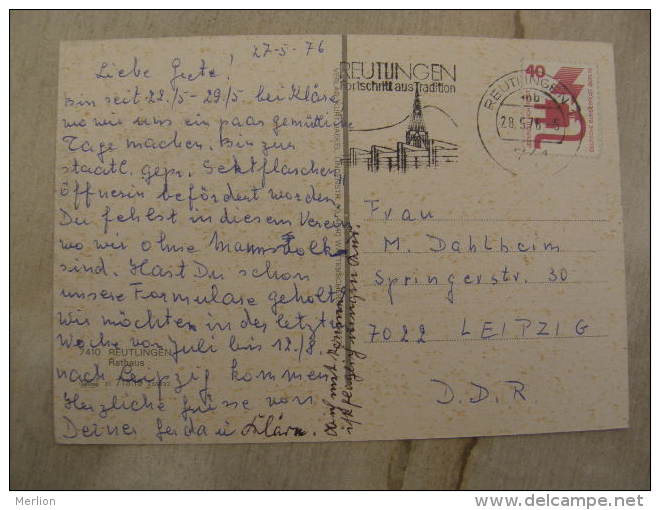 27-5-76
Liebe Grete!
Bin seit 22./5 - 29./5. bei Kläre
wo wir uns ein paar gemütliche
Tage machen. Bin zur
staatl. gepr. Sektflaschen
öffnerin befördert worden.
Du fehlst in diesem Verein
wo wir ohne Mannsvolk
sind. Hast Du schon
unsere Formulare geholt
wir möchten in der letzten
Woche von Juli bis 12./8.
nach Leipzig kommen
Herzliche Grüsse von
Deiner Gerda u Klära.
7410 REUTLINGEN
Rathaus
REUTLINGEN
Fortschritt aus Tradition
REUTLINGEN
28.5.76
40
DEUTSCHE BUNDESPOST BERLIN
Frau
M. Dahlheim
Springerstr. 30
7022 LEIPZIG
D.D.R
Merlion
www.delcampe.net